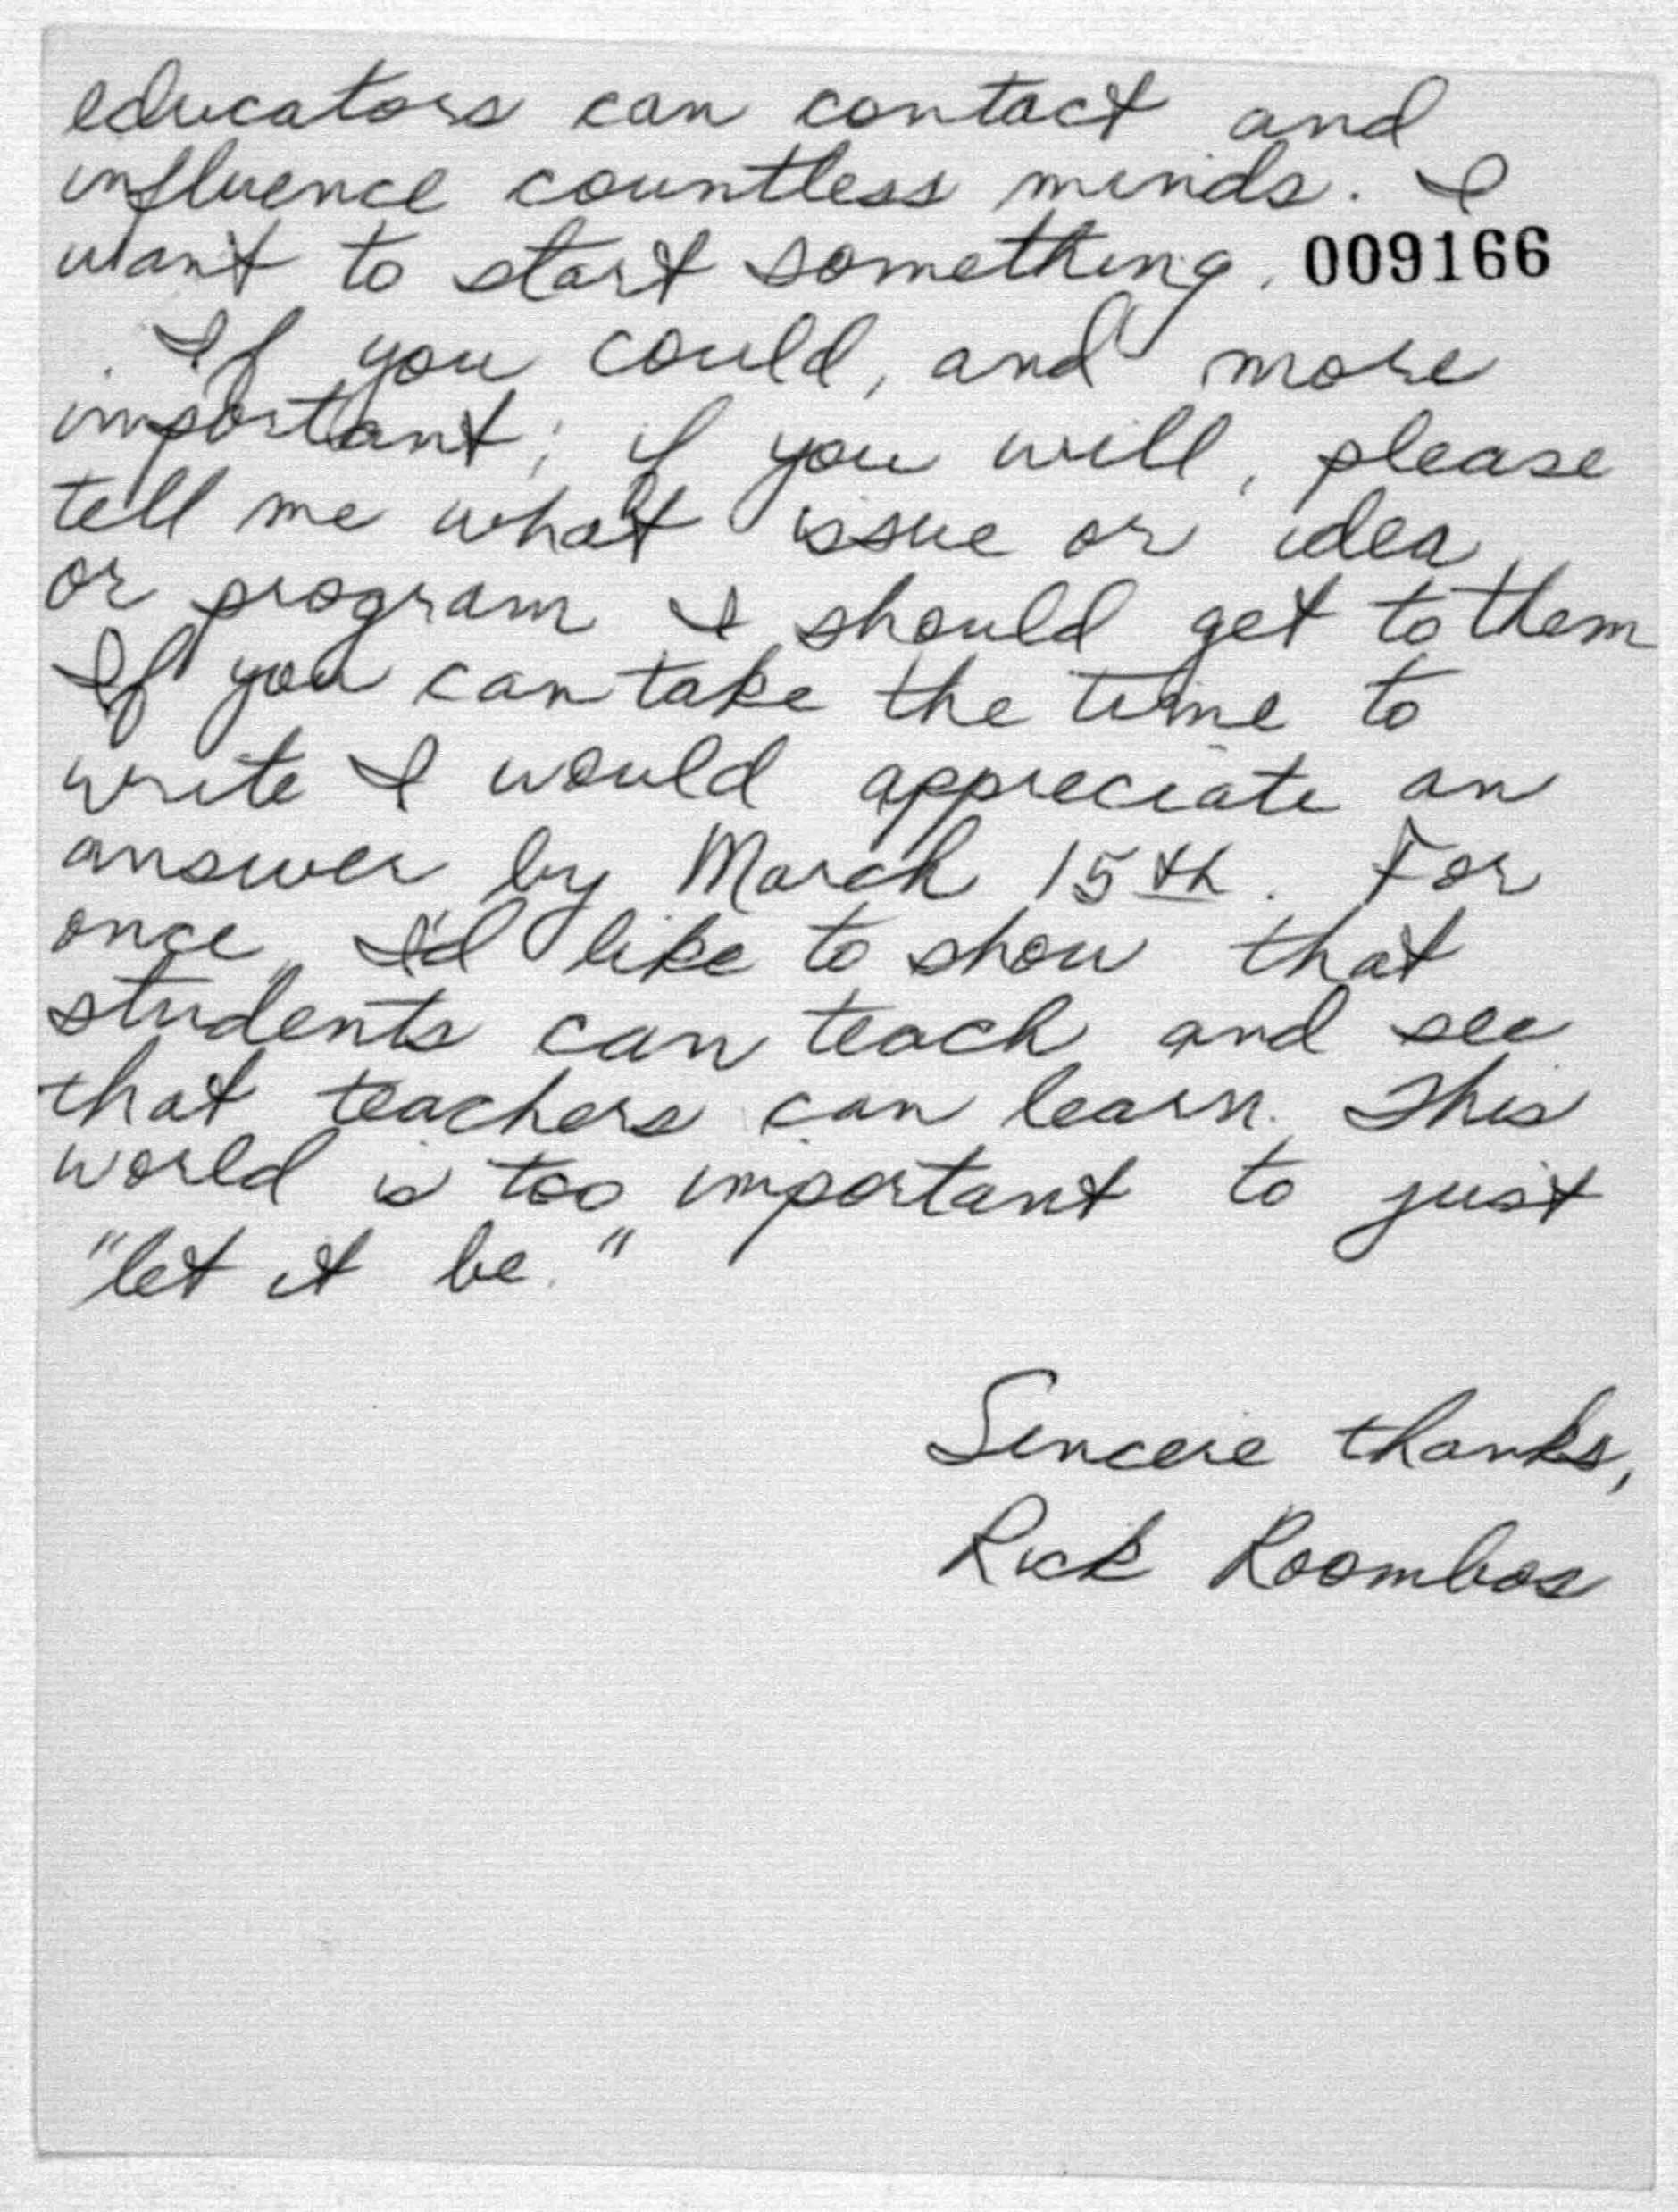 educators can contact and
influence countless minds. I
want to start something. 009166
If you could, and more
important; if you will, please
tell me what issue or idea
or program I should get to them
If you can take the time to
write I would appreciate an
answer by March 15th. For
once I'd like to show that
students can teach and see
that teachers can learn. This
world is too important to just
"let it be."
Sincere thanks,
Rick Roombos